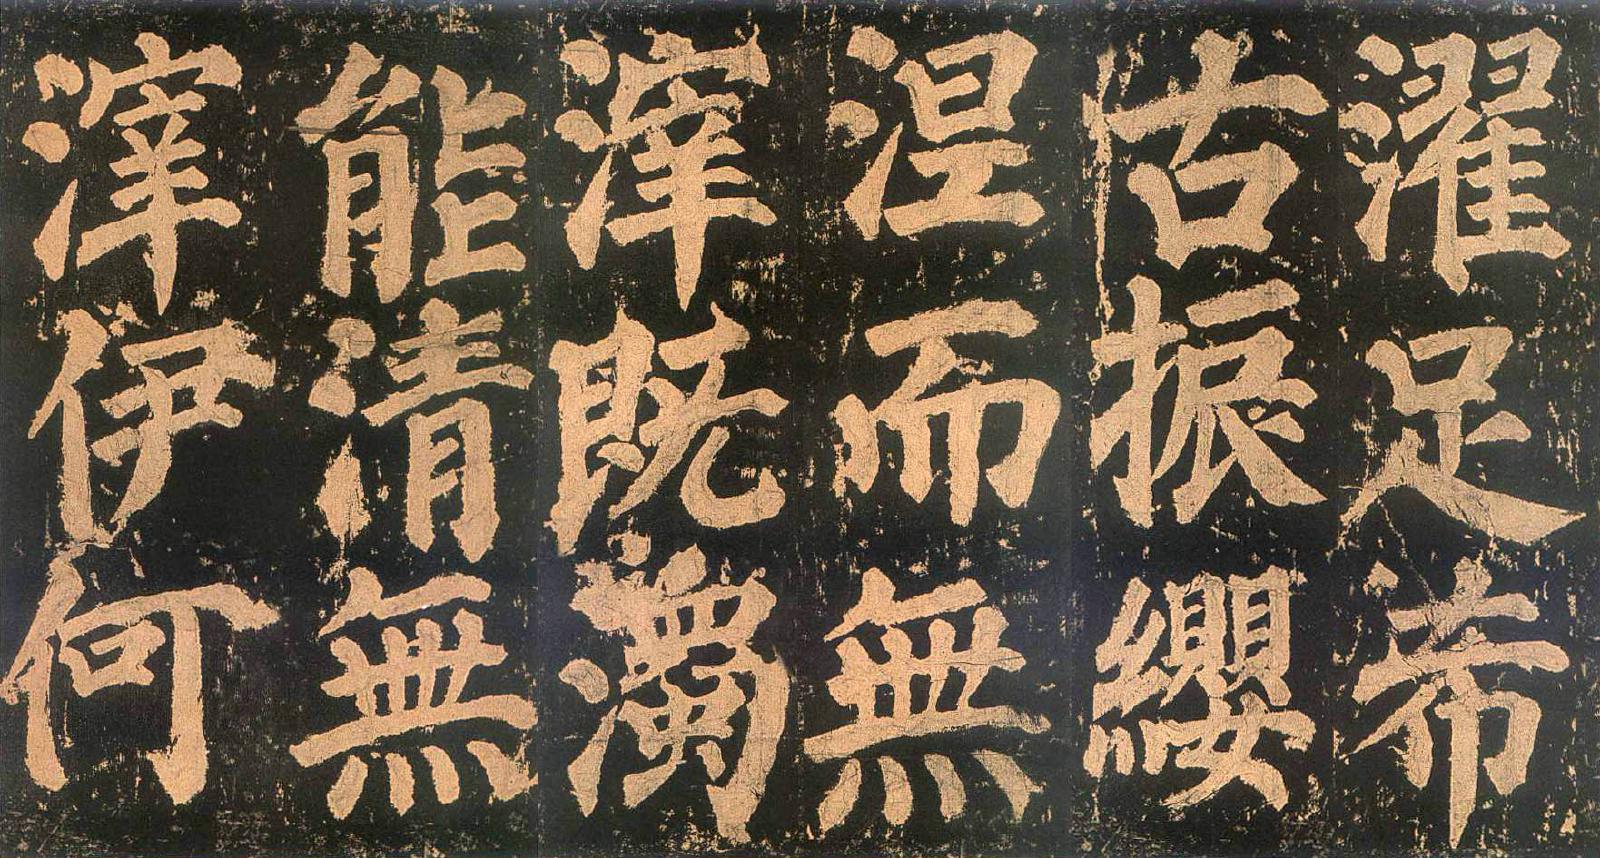 濯足希
古振纓
涅而無
滓既濁
能清無
滓伊何